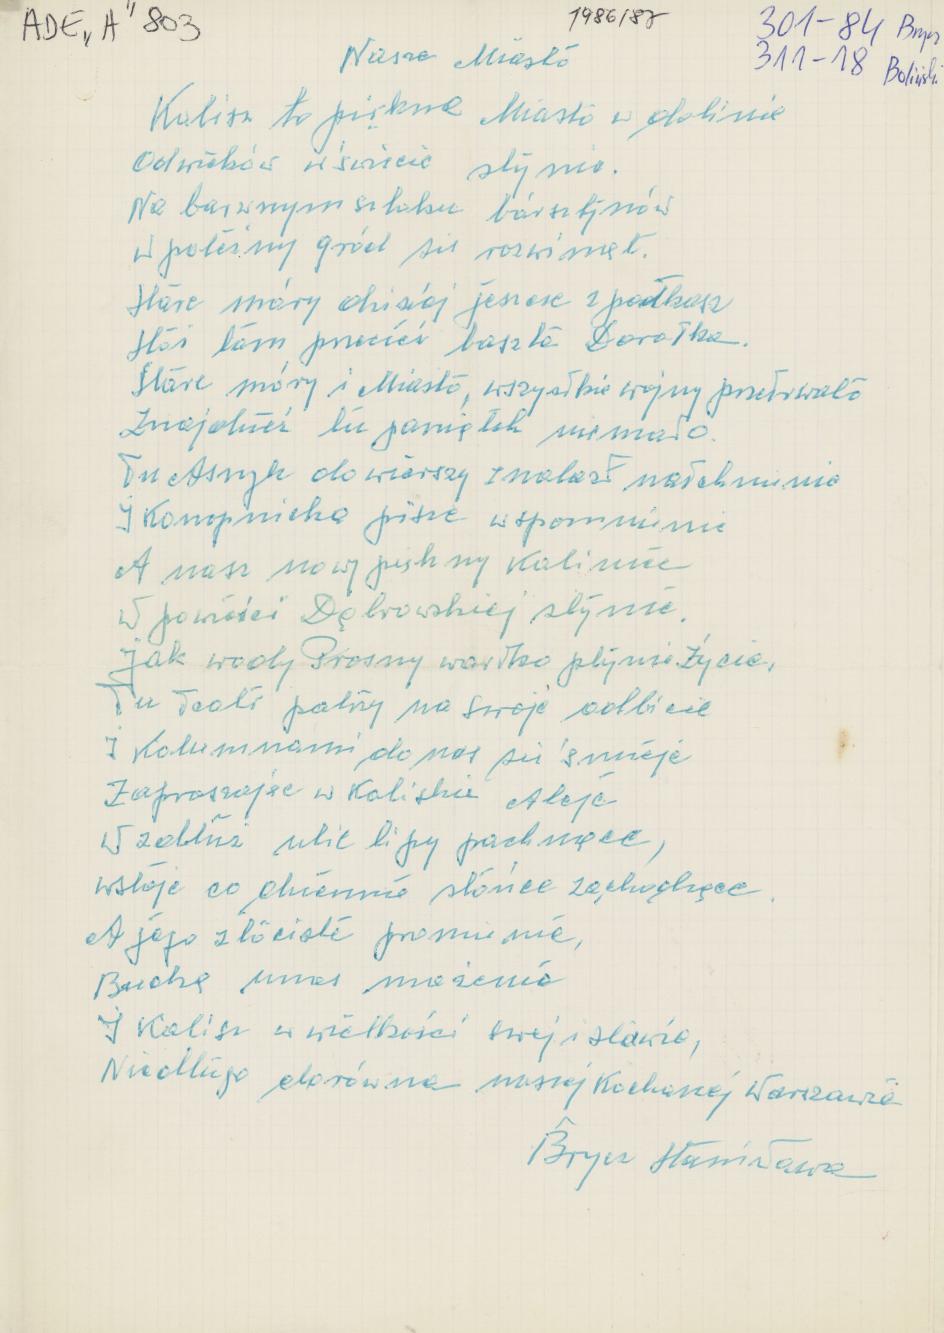 ADE „A" 803
1986/87
301-84 Bryś
311-18 Boliński
Nasze Miasto
Kalisz to piękne Miasto w dolinie
Odwieków w świecie słynie.
Na barwnym szlaku bursztynów
w potężny gród się rozwinął.
Stare móry dzisiaj jeszcze spotkasz
Stoi tam przecież baszta Dorotka.
Stare móry i Miasto, wszystkie wojny przetrwało
Znajdzież tu pamiątek niemało.
Tu Asnyk do wierszy znalazł natchnienie
I Konopnicka pisze wspomnienie
A nasz nowy piękny Kaliniec
W powieści Dąbrowskiej słynie.
Jak wody Prosny wartko płynie życie,
Tu teatr patrzy na swoje odbicie
I Kolumnami do nas się śmieje
Zapraszając w Kaliskie Aleje
Wzdłuż ulic lipy pachnące,
wstaje co dziennie słońce zachodzące.
A jego złociste promienie,
Budzą unas marzenia
I Kalisz w wielkości swej i sławie,
Niedługo dorówna naszej Kochanej Warszawie
Stanisława